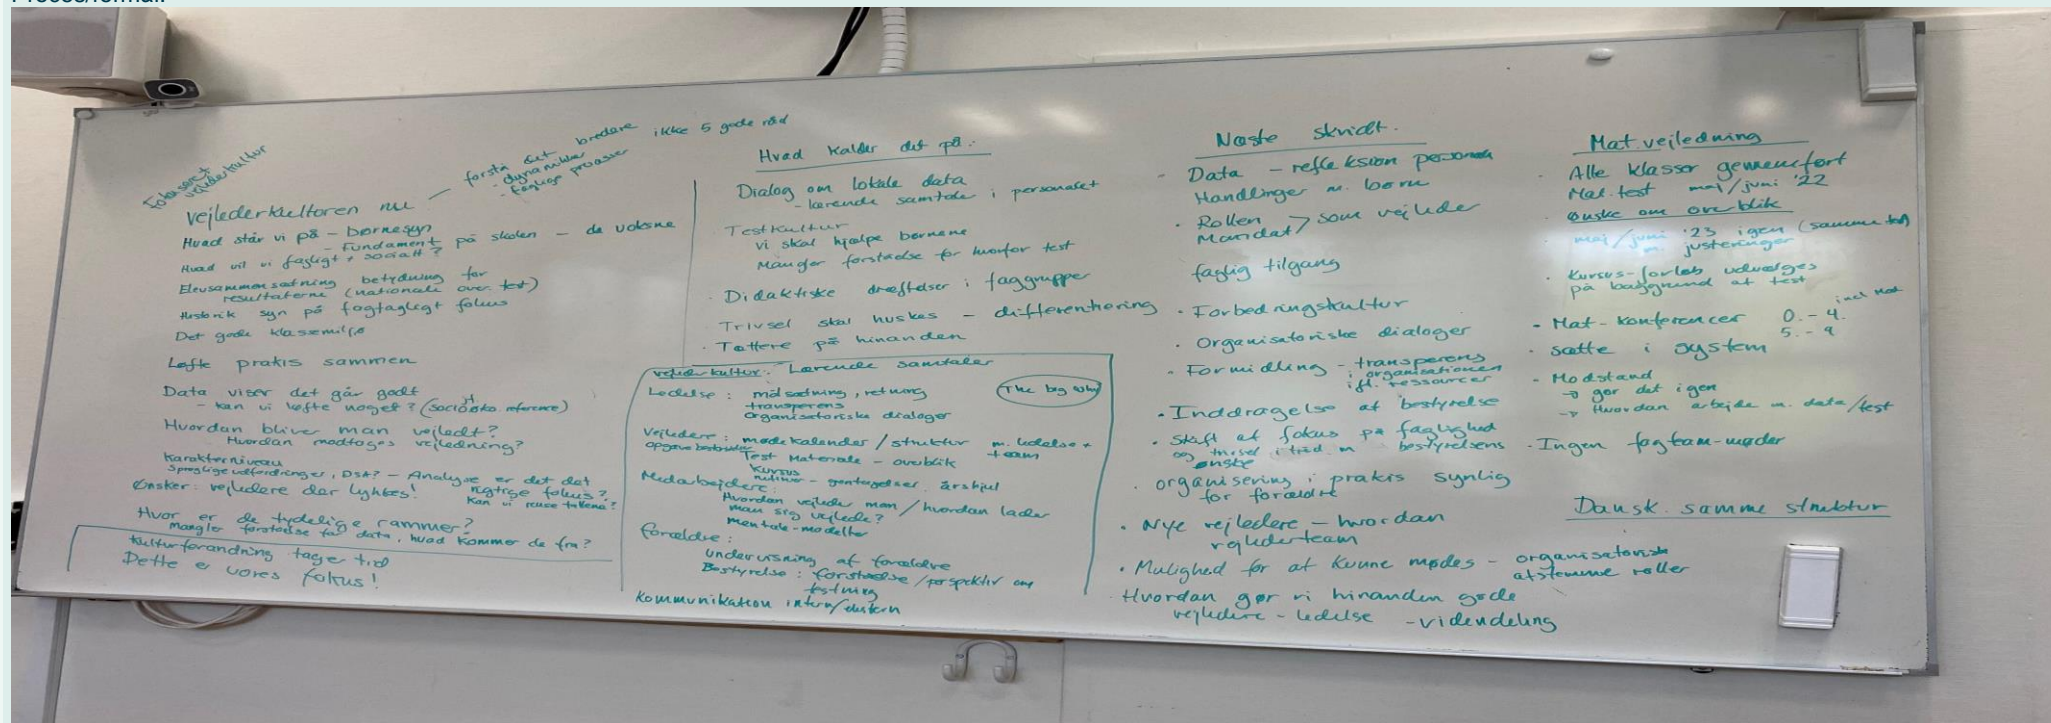 Fokuseret
vejlederkultur
vejlederkulturen nu — forstå det bredere ikke 5 gode råd
- dynamikker
- faglige processer
Hvad står vi på - børnesyn
- Fundament på skolen - de voksne
Hvad vil vi fagligt + socialt?
Elevsammensætning betydning for
resultaterne (nationale over. test)
Historik syn på fagfagligt fokus
Det gode klassemiljø
Løfte praksis sammen
Data viser det går godt
- kan vi løfte noget? (socioøko. reference)
Hvordan bliver man vejledt?
Hvordan modtages vejledning?
Karakterniveau
Sproglige udfordringer, DSA? - Analyse er det det
rigtige fokus?
Ønsker: vejledere der lykkes! Kan vi tallene?
Hvor er de tydelige rammer?
mangler forståelse for data, hvad kommer de fra?
Kulturforandring tager tid
Dette er vores fokus!
Hvad kalder det på:
Dialog om lokale data
- lærende samtale i personalet
Testkultur
vi skal hjælpe børnene
Mangler forståelse for hvorfor test
· Didaktiske drøftelser i faggrupper
· Trivsel skal huskes - differentiering
· Tættere på hinanden
vejlederkultur: Lærende samtaler
Ledelse: målsætning, retning
The big why
transparens
organisatoriske dialoger
Vejledere: mødekalender / struktur m. ledelse +
team
opgavebeskrivelse
Test Materiale - overblik
Kursus
rutiner - gentagelser. årshjul
Medarbejdere:
Hvordan vejleder man / hvordan lader
man sig vejlede?
mentale-modeller
forældre:
undervisning af forældre
Bestyrelse: forståelse / perspektiv om
testning
Kommunikation intern/ekstern
Næste skridt.
· Data - refleksion personale
Handlinger m. børn
· Rollen > som vejleder
Mandat
faglig tilgang
· Forbedringskultur
· Organisatoriske dialoger
· Formidling - transparens
i organisationen
ift. ressourcer
· Inddragelse af bestyrelse
· Skift af fokus på faglighed
og trivsel i tråd m bestyrelsens
ønske
· organisering i praksis synlig
for forældre
· Nye vejledere - hvordan
vejlederteam
· Mulighed for at kunne mødes - organisatorisk
afstemme roller
· Hvordan gør vi hinanden gode
vejledere - ledelse - videndeling
Mat. vejledning
· Alle klasser gennemført
Mat. test maj/juni '22
· Ønske om overblik
· maj/juni '23 igen (samme test)
m. justeringer
· Kursus-forløb udvælges
på baggrund af test
- Mat-konferencer 0. - 4. incl Mat
5. - 9
· sætte i system
- Modstand
→ gør det igen
→ Hvordan arbejde m. data/test
· Ingen fagteam-møder
Dansk. samme struktur